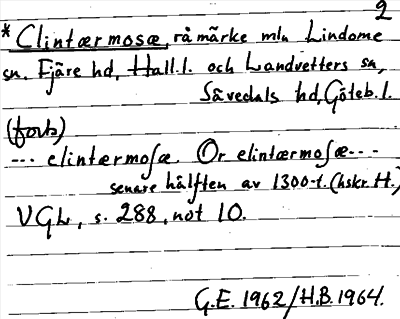 2
* Clintærmosæ, råmärke mln Lindome
sn, Fjäre hd, Hall.l. och Landvetters sn,
Sävedals hd, Göteb.l.
(forts)
--- elintærmosæ. Or elintærmosæ---
senare hälften av 1300-t. (hskr. H.)
VGL, s. 288, not 10.
G.E. 1962/H.B. 1964.